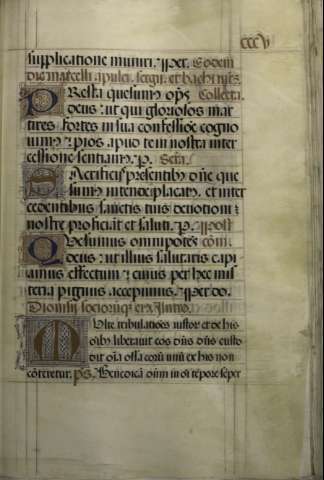 cccv
supplicatione muniri. per. Eodem
die marcelli apulei. sergii. et bachi mr̃s.
PResta quesumus oῥs Collecta.
deus: ut qui gloriosos mar
tires fortes in sua confessiõe cogno
uimꝰ: pios apud te in nostra inter
cessione sentiamꝰ. p. Secta.
SAcrificiis presentibꝰ dñe que
sumꝰ intende placatꝰ. et inter
cedentibus sanctis tuis deuotioni
nostre proficiat et saluti. p. post
QUesumus omnipotẽs com̃.
deus: ut illius salutaris capi
amus effectum: cuius per hec mis
teria pignus accepimus. per dõ.
Dionisii sociorũqꝫ eiꝰ Introi.
MUlte tribulatiões iustorꝫ et de his
oĩbꝰ liberauit eos dñs dñs custo
dit oĩa ossa eorũ unũ ex his non
cõteretur. ps. Benedicã dñm in oĩ tẽpore sẽper